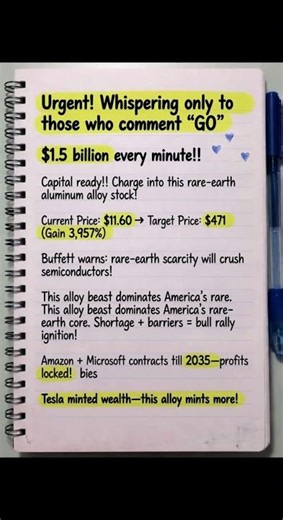 Urgent! Whispering only to
those who comment “GO”
$1.5 billion every minute!!
Capital ready!! Charge into this rare-earth
aluminum alloy stock!
Current Price: $11.60 → Target Price: $471
(Gain 3,957%)
Buffett warns: rare-earth scarcity will crush
semiconductors!
This alloy beast dominates America’s rare.
This alloy beast dominates America’s rare-
earth core. Shortage + barriers = bull rally
ignition!
Amazon + Microsoft contracts till 2035—profits
locked! bies
Tesla minted wealth—this alloy mints more!